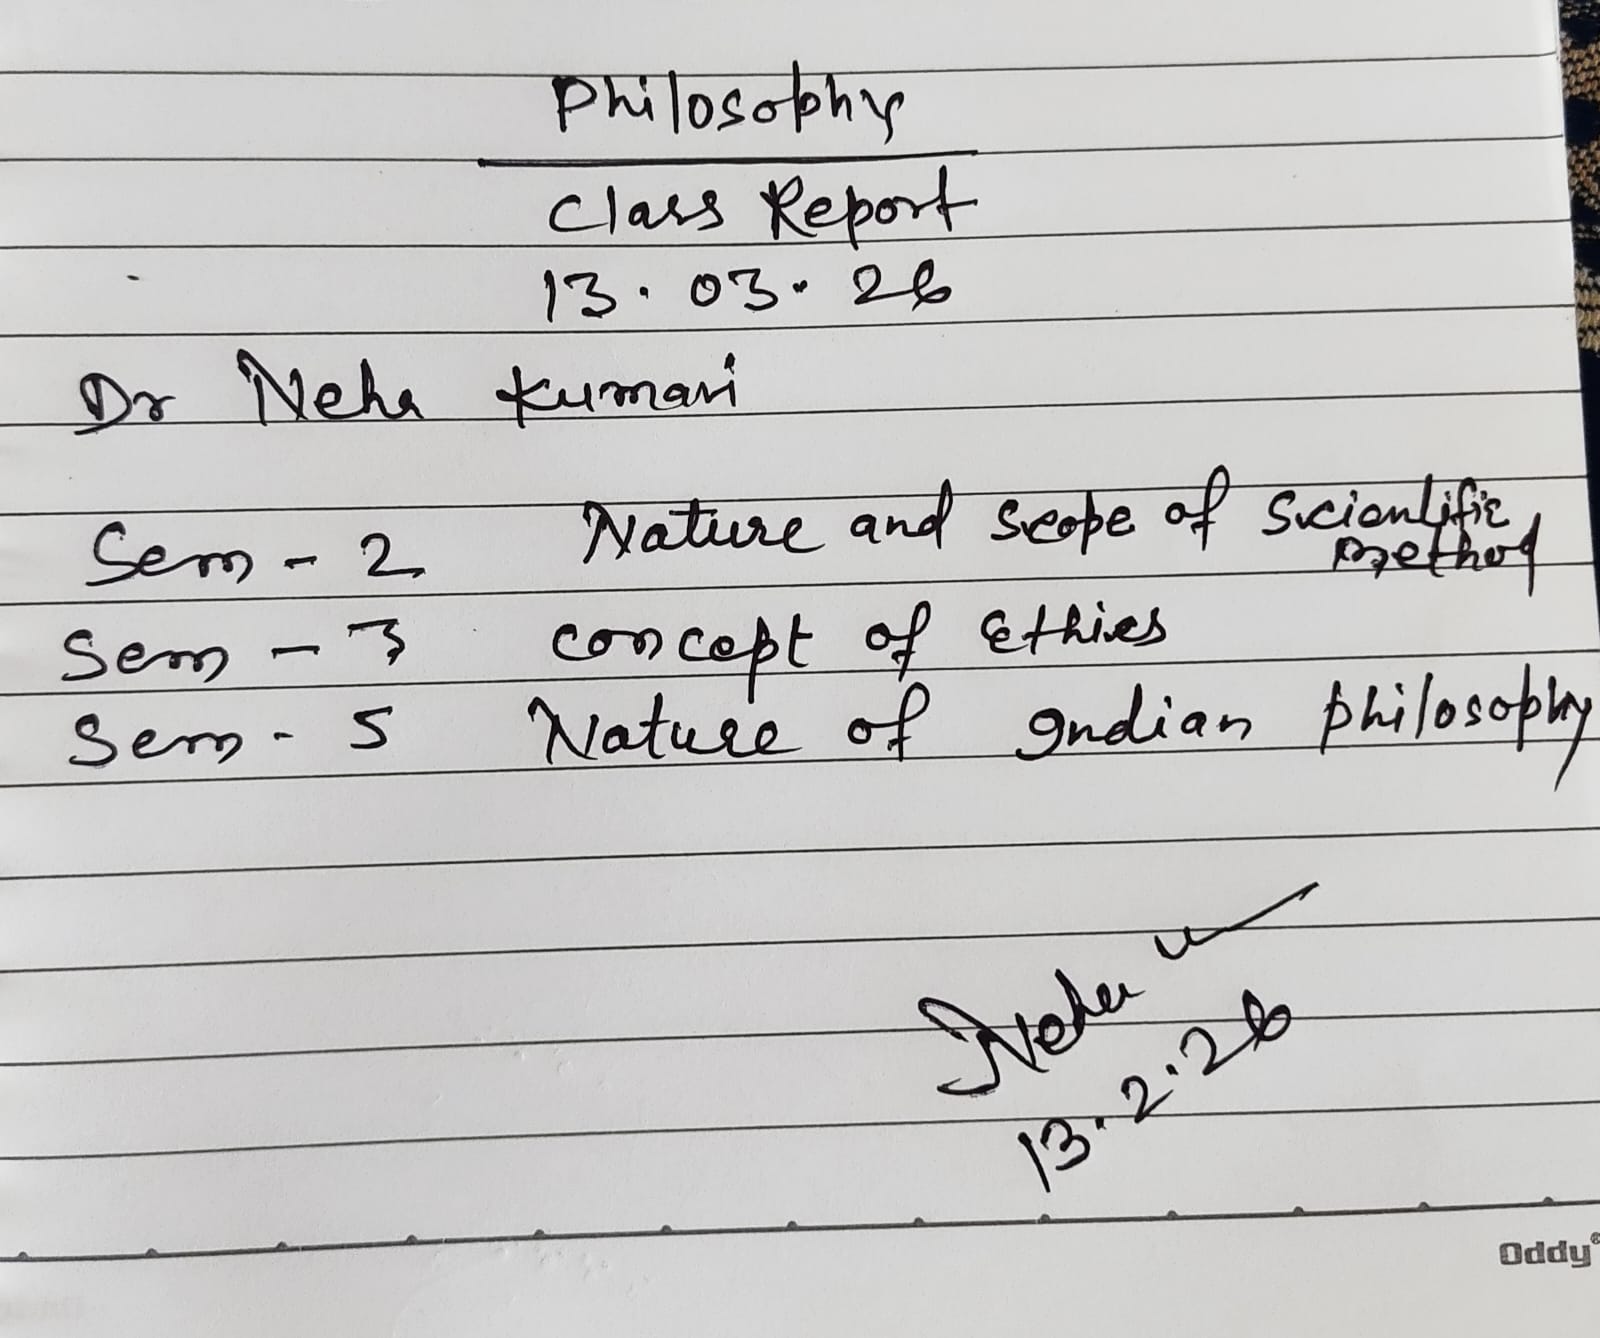 Philosophy
Class Report
13.03.26
Dr Neha Kumari
Sem - 2 Nature and Scope of Scientific Method
Sem - 3 Concept of Ethics
Sem - 5 Nature of Indian Philosophy
Neha
13.2.26
Oddy®